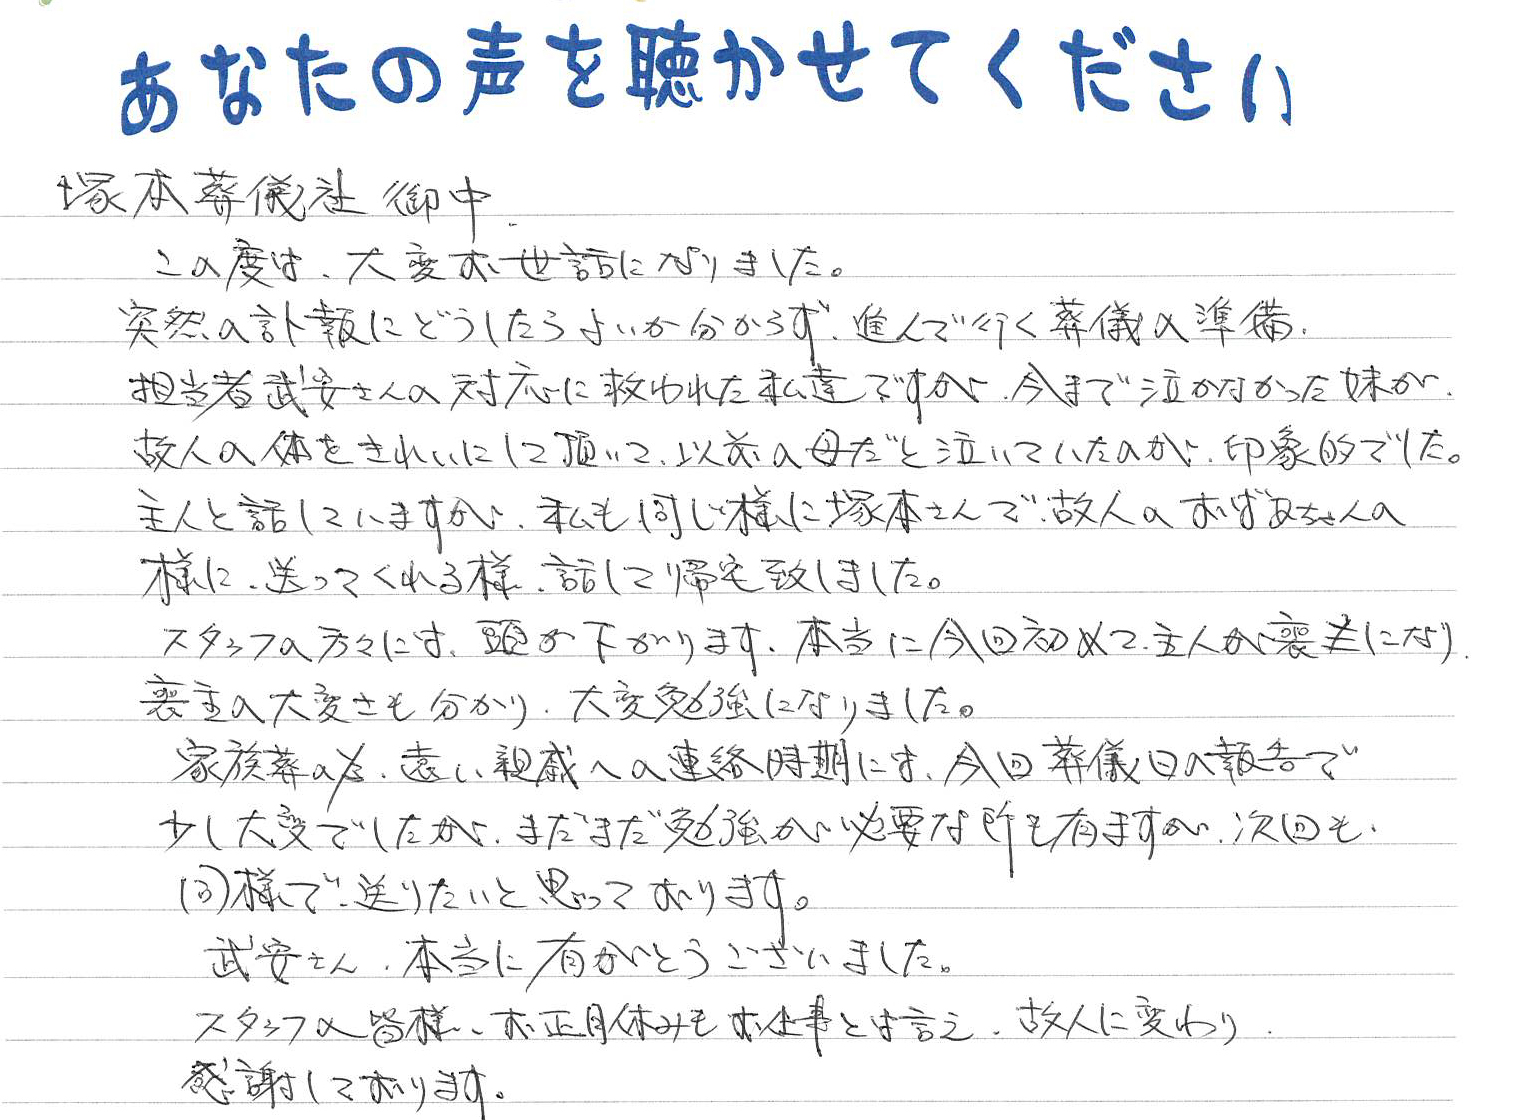 あなたの声を聴かせてください
塚本葬儀社 御中
この度は、大変お世話になりました。
突然の訃報にどうしたらよいか分からず、進んで行く葬儀の準備、
担当者武安さんの対応に救われた私達ですが、今まで泣かなかった妹が、
故人の体をきれいにして頂いて、以前の母だと泣いていたのが、印象的でした。
主人と話していますが、私も同じ様に塚本さんで、故人のおばあちゃんの
様に、送ってくれる様、話して帰宅致しました。
スタッフの方々には、頭が下がります、本当に今回初めて、主人が喪主になり、
喪主の大変さも分かり、大変勉強になりました。
家族葬の為、遠い親戚への連絡時期には、今回葬儀日の報告で
少し大変でしたが、まだまだ勉強が必要な所も有ますが、次回も、
同様で、送りたいと思っております。
武安さん、本当に有がとうございました。
スタッフの皆様、お正月休みもお仕事とは言え、故人に変わり、
感謝しております。